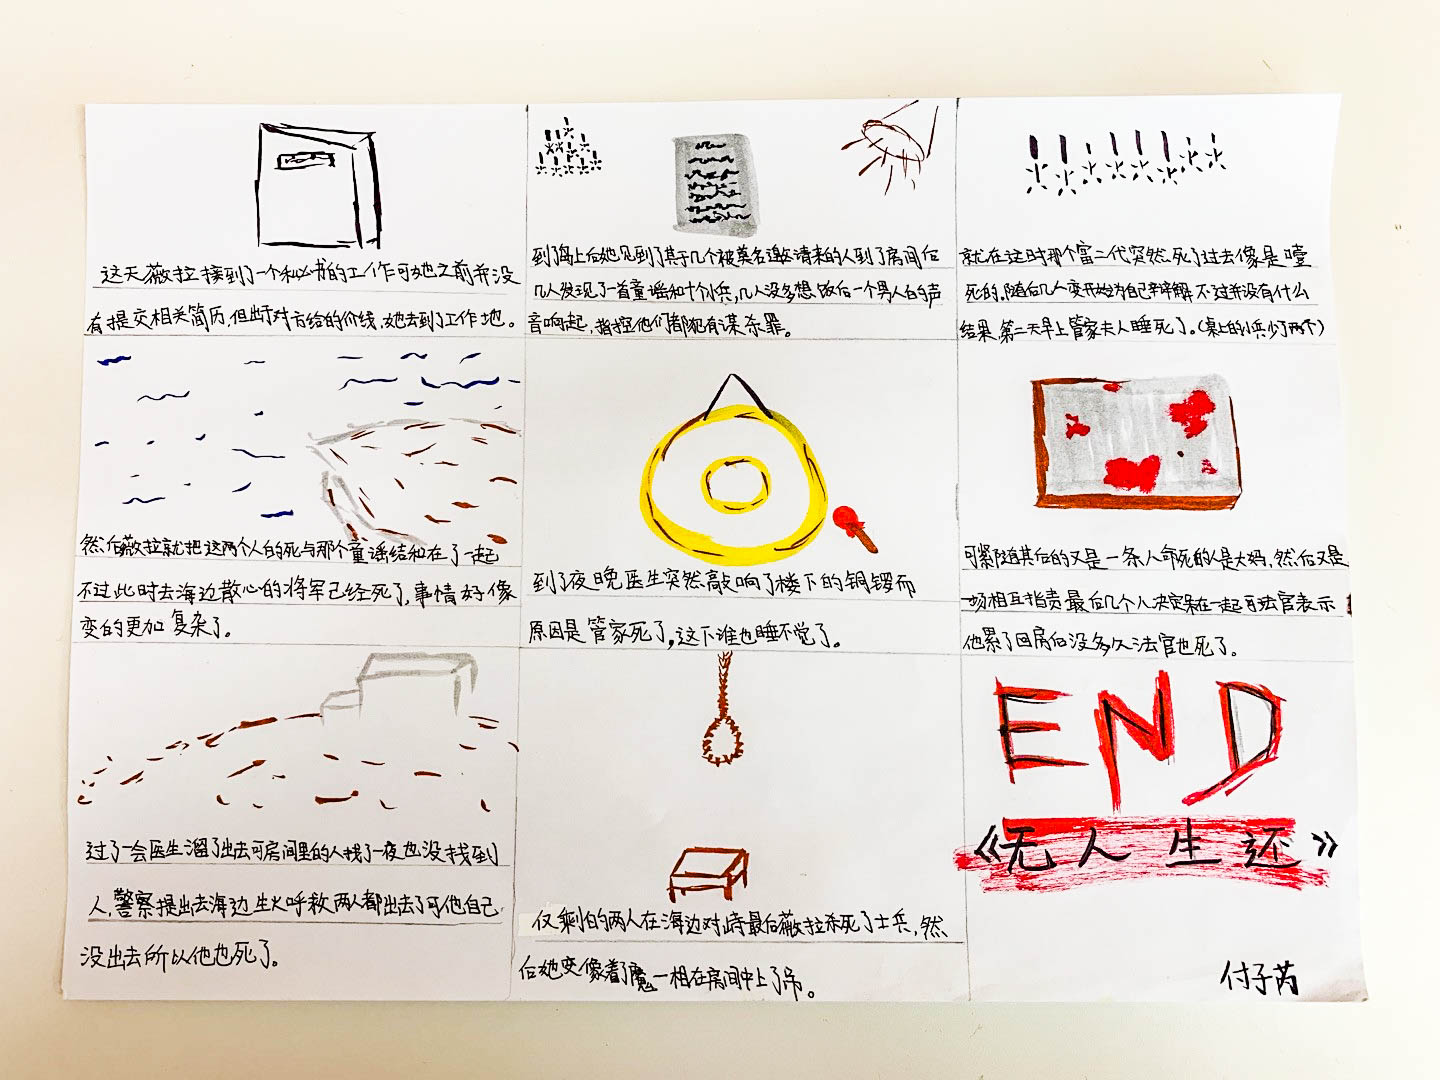 这天薇拉接到了一个秘书的工作可她之前并没
有提交相关简历,但出于对方给的价钱,她去到了工作地。
到了岛上后她见到了其于几个被莫名邀请来的人到了房间后
几人发现了一首童谣和十个小兵,几人没多想饭后一个男人的声
音响起,指控他们都犯有谋杀罪。
就在这时那个富二代突然死了过去像是噎
死的,随后几人变开始为自己辩解不过并没有什么
结果,第二天早上管家夫人睡死了。(桌上的小兵少了两个)
然后薇拉就把这两个人的死与那个童谣结和在了一起
不过此时去海边散心的将军已经死了,事情好像
变的更加复杂了。
到了夜晚医生突然敲响了楼下的铜锣而
原因是管家死了,这下谁也睡不觉了。
可紧随其后的又是一条人命死的人是大妈,然后又是
一场相互指责最后几个人决定呆在一起可法官表示
他累了回房后没多久法官也死了。
过了一会医生溜了出去可房间里的人找了一夜也没找到
人,警察提出去海边生火呼救两人都出去了可他自己
没出去所以他也死了。
仅剩的两人在海边对峙最后薇拉杀死了士兵,然
后她变像着了魔一相在房间中上了吊。
END
《无人生还》
付子芮